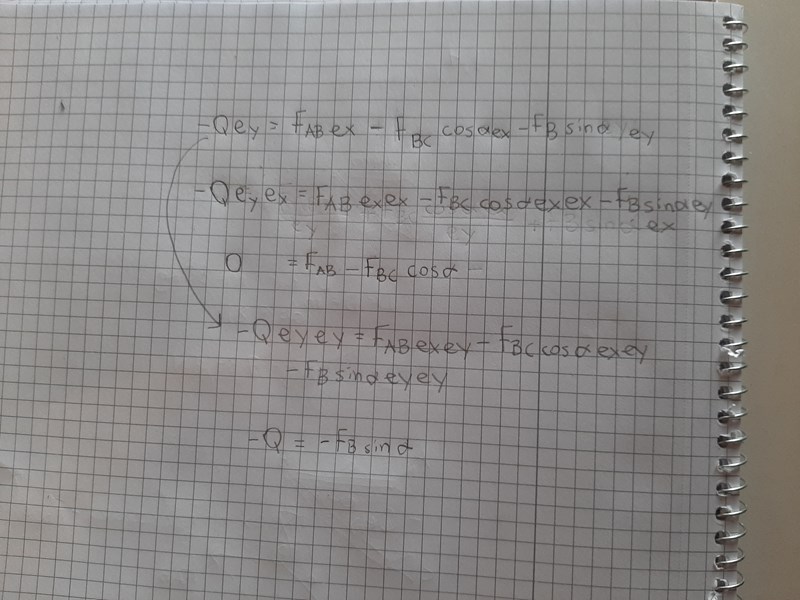 -Qey = FABex - FBC cosαex - FB sinα ey
-Qeyex = FABexex - FBC cosαexex - FBsinαey
ex
0 = FAB - FBC cosα -
-Qeyey = FABexey - FBC cosαexey
-FBsinαeyey
-Q = -FBsinα